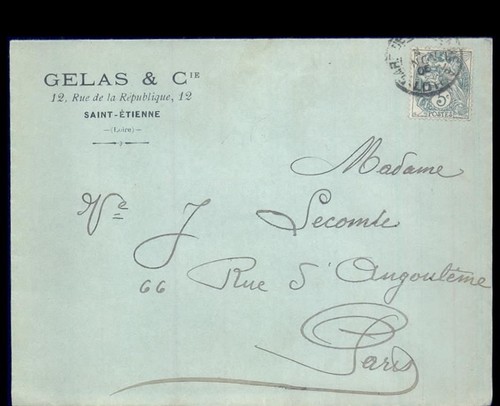 GELAS & CIE
12, Rue de la République, 12
SAINT-ÉTIENNE
(Loire)
5
POSTES
GARE
Madame
Ve J Lecomte
66 Rue d'Angoulême
Paris